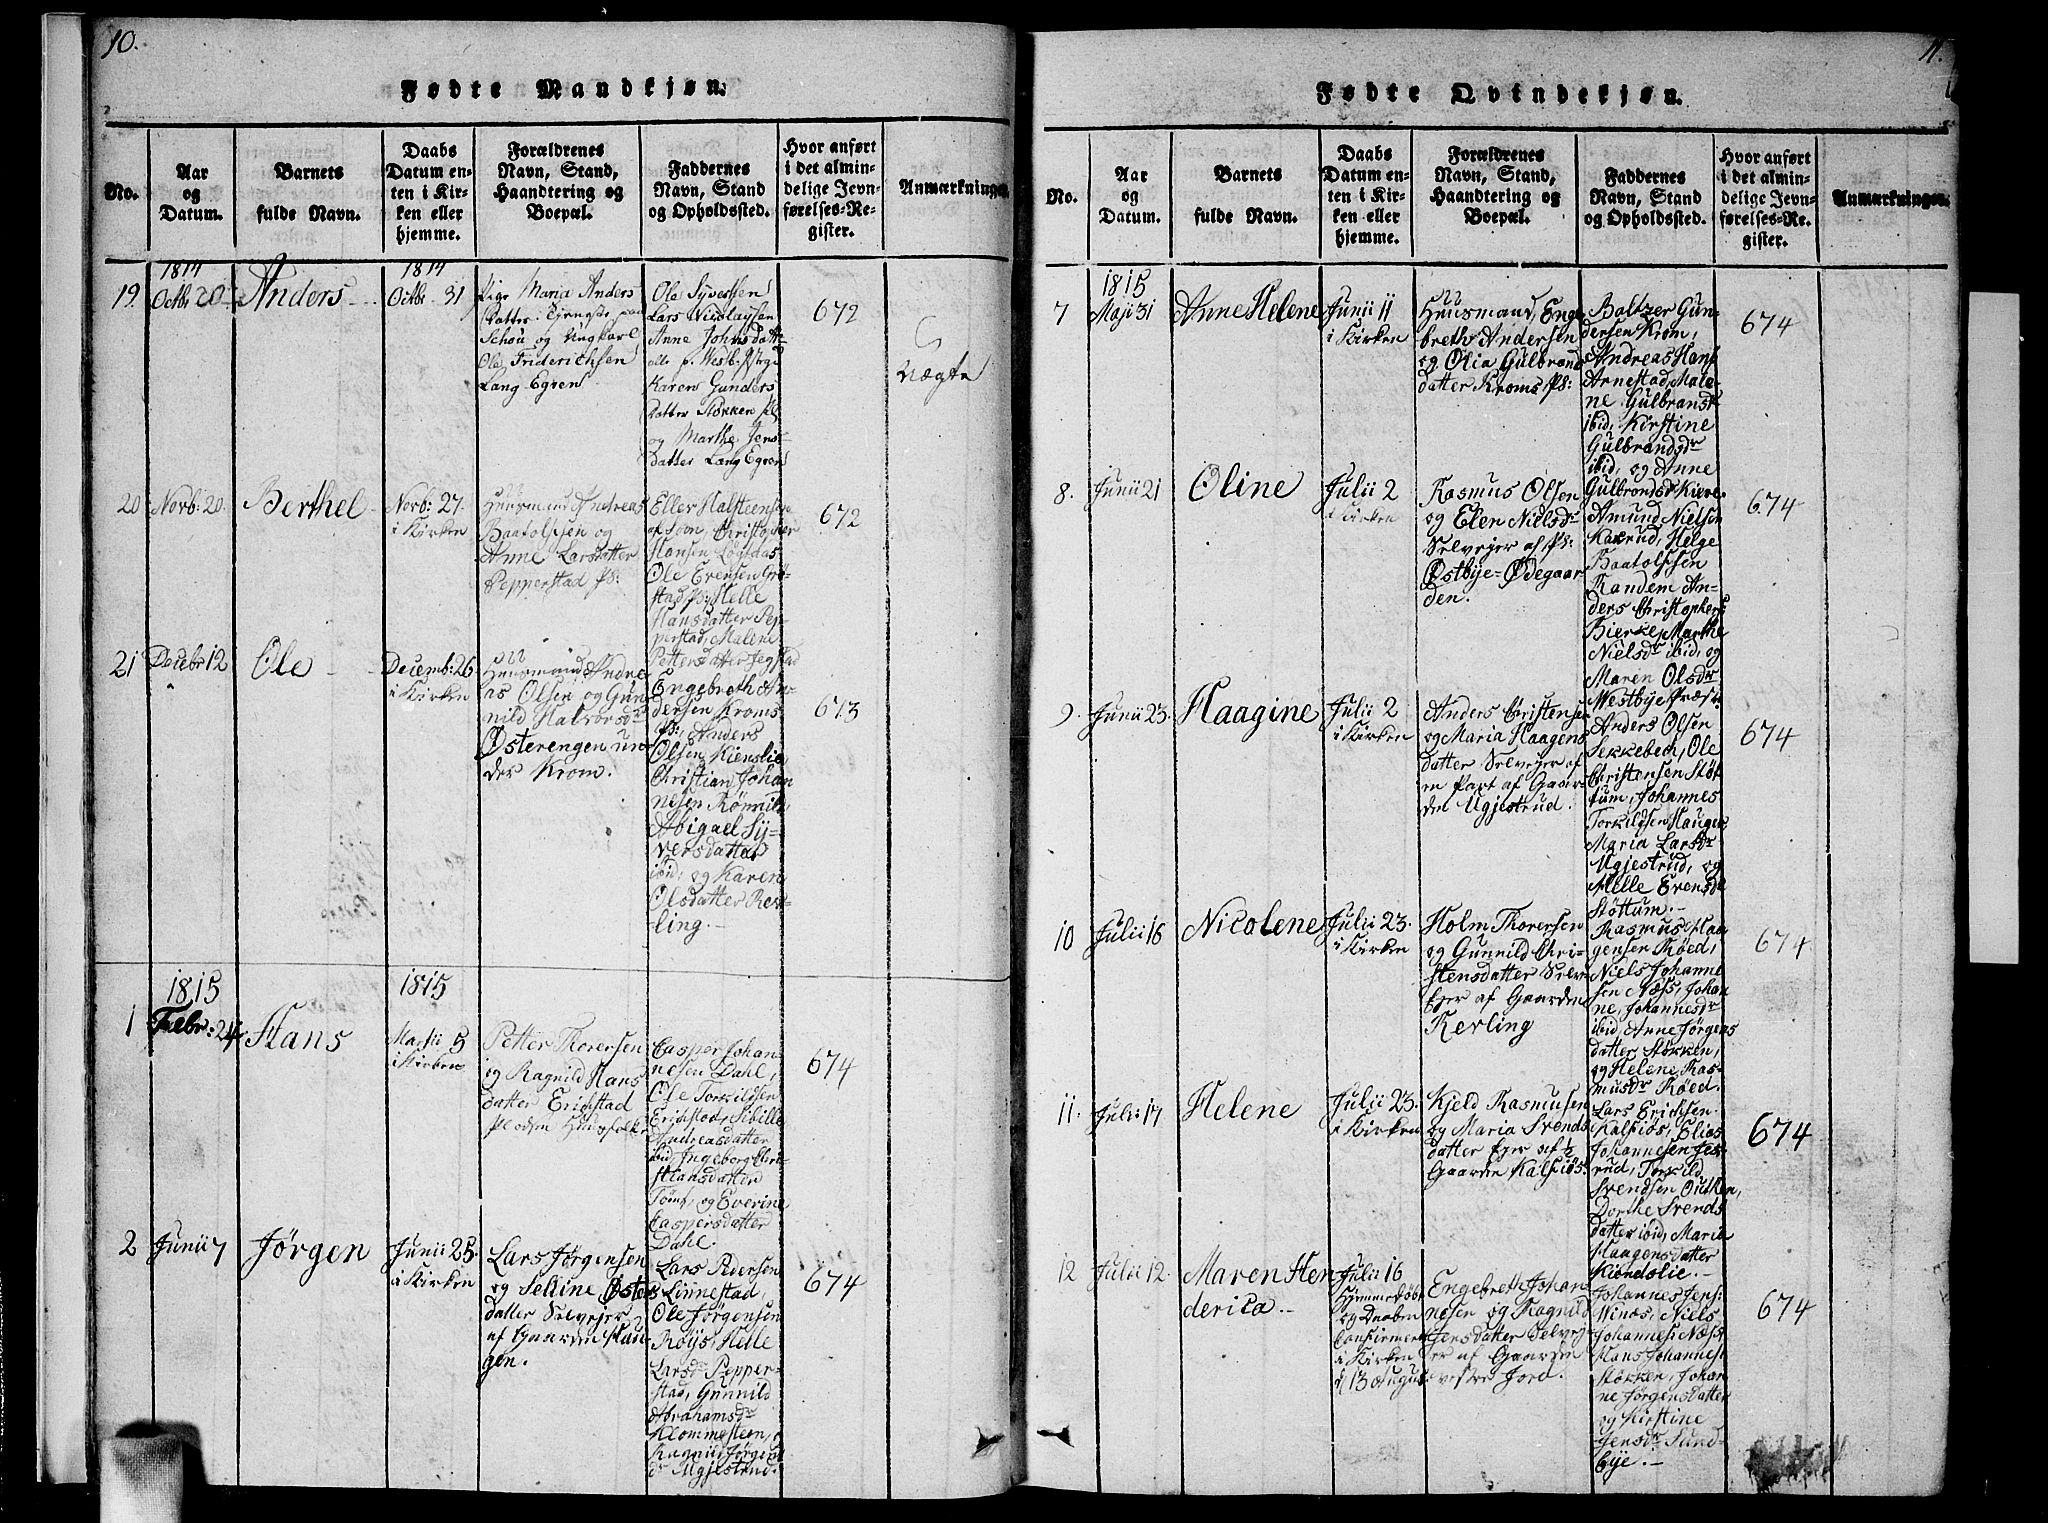 10.
Fødte Mandkjøn.
No.
Aar
og
Datum.
Barnets
fulde Navn.
Daabs
Datum en-
ten i Kir-
ken eller
hjemme.
Forældrenes
Navn, Stand,
Haandtering og
Boepæl.
Faddernes
Navn, Stand
og Opholdssted.
Hvor anført
i det almin-
delige Jevn-
førelses-Re-
gister.
Anmærkninger.
19.
1814
Octbr 20
Anders
1814
Octbr 31
Pige Maria Anders
Datter tjeneste paa
Schou og Ungkarl
Ole Friderichsen
Lang Egren
Ole Syversen
Lars Nicolaysen
Anne Johnsdatt
alle p. Westb. Præstgd
Karen Gunders
Datter Støkken
og Marthe Jens
Datter Lang Egren
672
Uægte
20
Novb: 20.
Berthel
Novb: 27.
i Kirken
Huusmand Andreas
Baatolfsen og
Anne Larsdatter
Pepperstad Ps:
Eller Halsteensen
Christopher
Hansen
Ole Evensen Grø-
stad, Helle
Hansdatter Pep-
perstad, Malene
Pettersdatter Jegstad
672
21
Decbr 12
Ole
Decemb: 26
i Kirken
Huusmand Andre
as Olsen og Gun-
nild Halvorsdr
Østerengen un-
der Krom.
Engebreth An-
dersen Kroms
Ps:, Anders
Olsen Kienslie
Christian Johan
nesen Rønnild
Abigael Sy-
versdatter
ibid: og Karen
Olsdatter Rer-
ling.
673
1
1815
Febr: 24
Hans
1815
Martii 5
i Kirken
Petter Thorersen
og Ragnild Hans
datter Erichstad
Pladsen Huusfolk
Casper Johan
nesen Dahl,
Ole Torkildsen
Erichstad, Sibille
Andreasdatter
ibid, Ingeborg Chri-
stiansdatter
Tomt, og Everine
Caspersdatter
Dahl.
674
2
Junii 7
Jørgen
Junii 25.
i Kirken
Lars Jørgensen
og Selline Østers
datter Selvejer
af Gaarden Hau-
gen.
Lars Pedersen
Linnestad,
Ole Jørgensen
Røiis, Helle
Larsdr Pepper-
stad, Gunnild
Abrahamsdr
Klommesteen, og
Ragnil Jørgens
dr Ugjestrud.
674
11.
Fødte Qvindekjøn.
No.
Aar
og
Datum.
Barnets
fulde Navn.
Daabs
Datum en-
ten i Kir-
ken eller
hjemme.
Forældrenes
Navn, Stand,
Haandtering og
Boepæl.
Faddernes
Navn, Stand
og Opholdssted.
Hvor anført
i det almin-
delige Jevn-
førelses-Re-
gister.
Anmærkninger.
7
1815
Maji 31
Anne Helene
Junii 11
i Kirken
Huusmand, Enge
breth Andersen
og Olia Gulbrands
datter Kroms Ps:
Baltzer Gun-
dersen Krom,
Andreas Hans
Arnestad, Male-
ne Gulbransdr
ibid, Kirstine
Gulbrandsdr
ibid, og Anne
Gulbrandsdr Kiere
674
8.
Junii 21
Oline
Julii 2
i Kirken
Rasmus Olsen
og Elen Nielsdr
Selvejer af Ps:
Østbye-Ødegaar-
den.
Amund Nielsen
Haxrud, Helge
Baatolfsen
Randem, An-
ders Christophers
Bierke, Marthe
Nielsdr ibid, og
Maren Olsdr
Westbye Præstg
674
9.
Junii 23.
Haagine
Julii 2
i Kirken
Anders Christensen
og Maria Haagens
datter Selvejer af
en Part af Gaar-
den Ugjestrud.
Anders Olsen
Sekkebech, Ole
Christensen Støt
tum, Johannes
Torkildsen Haugen
Maria Larsdr
Ugjestrud, og
Helle Evensdr
Støttum.
674
10
Julii 16
Nicolene
Julii 23.
i Kirken
Holm Thorersen
og Gunnild Chri-
stensdatter Selv-
ejer af Gaarden
Rerling
Rasmus Haa-
gensen Røed,
Niels Johanne
sen Næss, Johan
ne, Johannesdr
ibid, Anne Jørgens
datter Støkken,
og Helene Ras-
musdr Røed.
674
11.
Julii 17
Helene
Julii 23.
i Kirken
Kjeld Rasmusen
og Maria Svends
datter Ejer af ½
Gaarden Kalsiøs.
Lars Erichsen
Kalsiøs, Elias
Johannesen Jes
rud, Torkild
Svendsen Outhen,
Dorthe Svends
datter ibid, Maria
Haagensdatter
Kiendslie.
674
12
Julii 12.
Maren Hen
derica.
Julii 16
Hjemmedøbt
og Daaben
Confirmeret
i Kirken
d 13 August
Engebreth Johan
nesen og Ragnild
Jensdatter Selvej
er af Gaarden
vestre Jord.
Johannes Jens:
Winæs, Niels
Johannes: Næss,
Hans Johannes:
Støkken, Johan
ne Jørgensdatter
og Kirstine
Jensdr Sund-
bye.
674